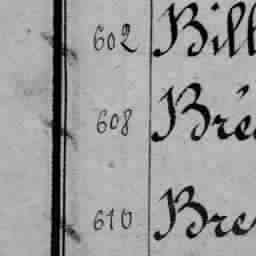 602 Bill
608 Bré
610 Bre